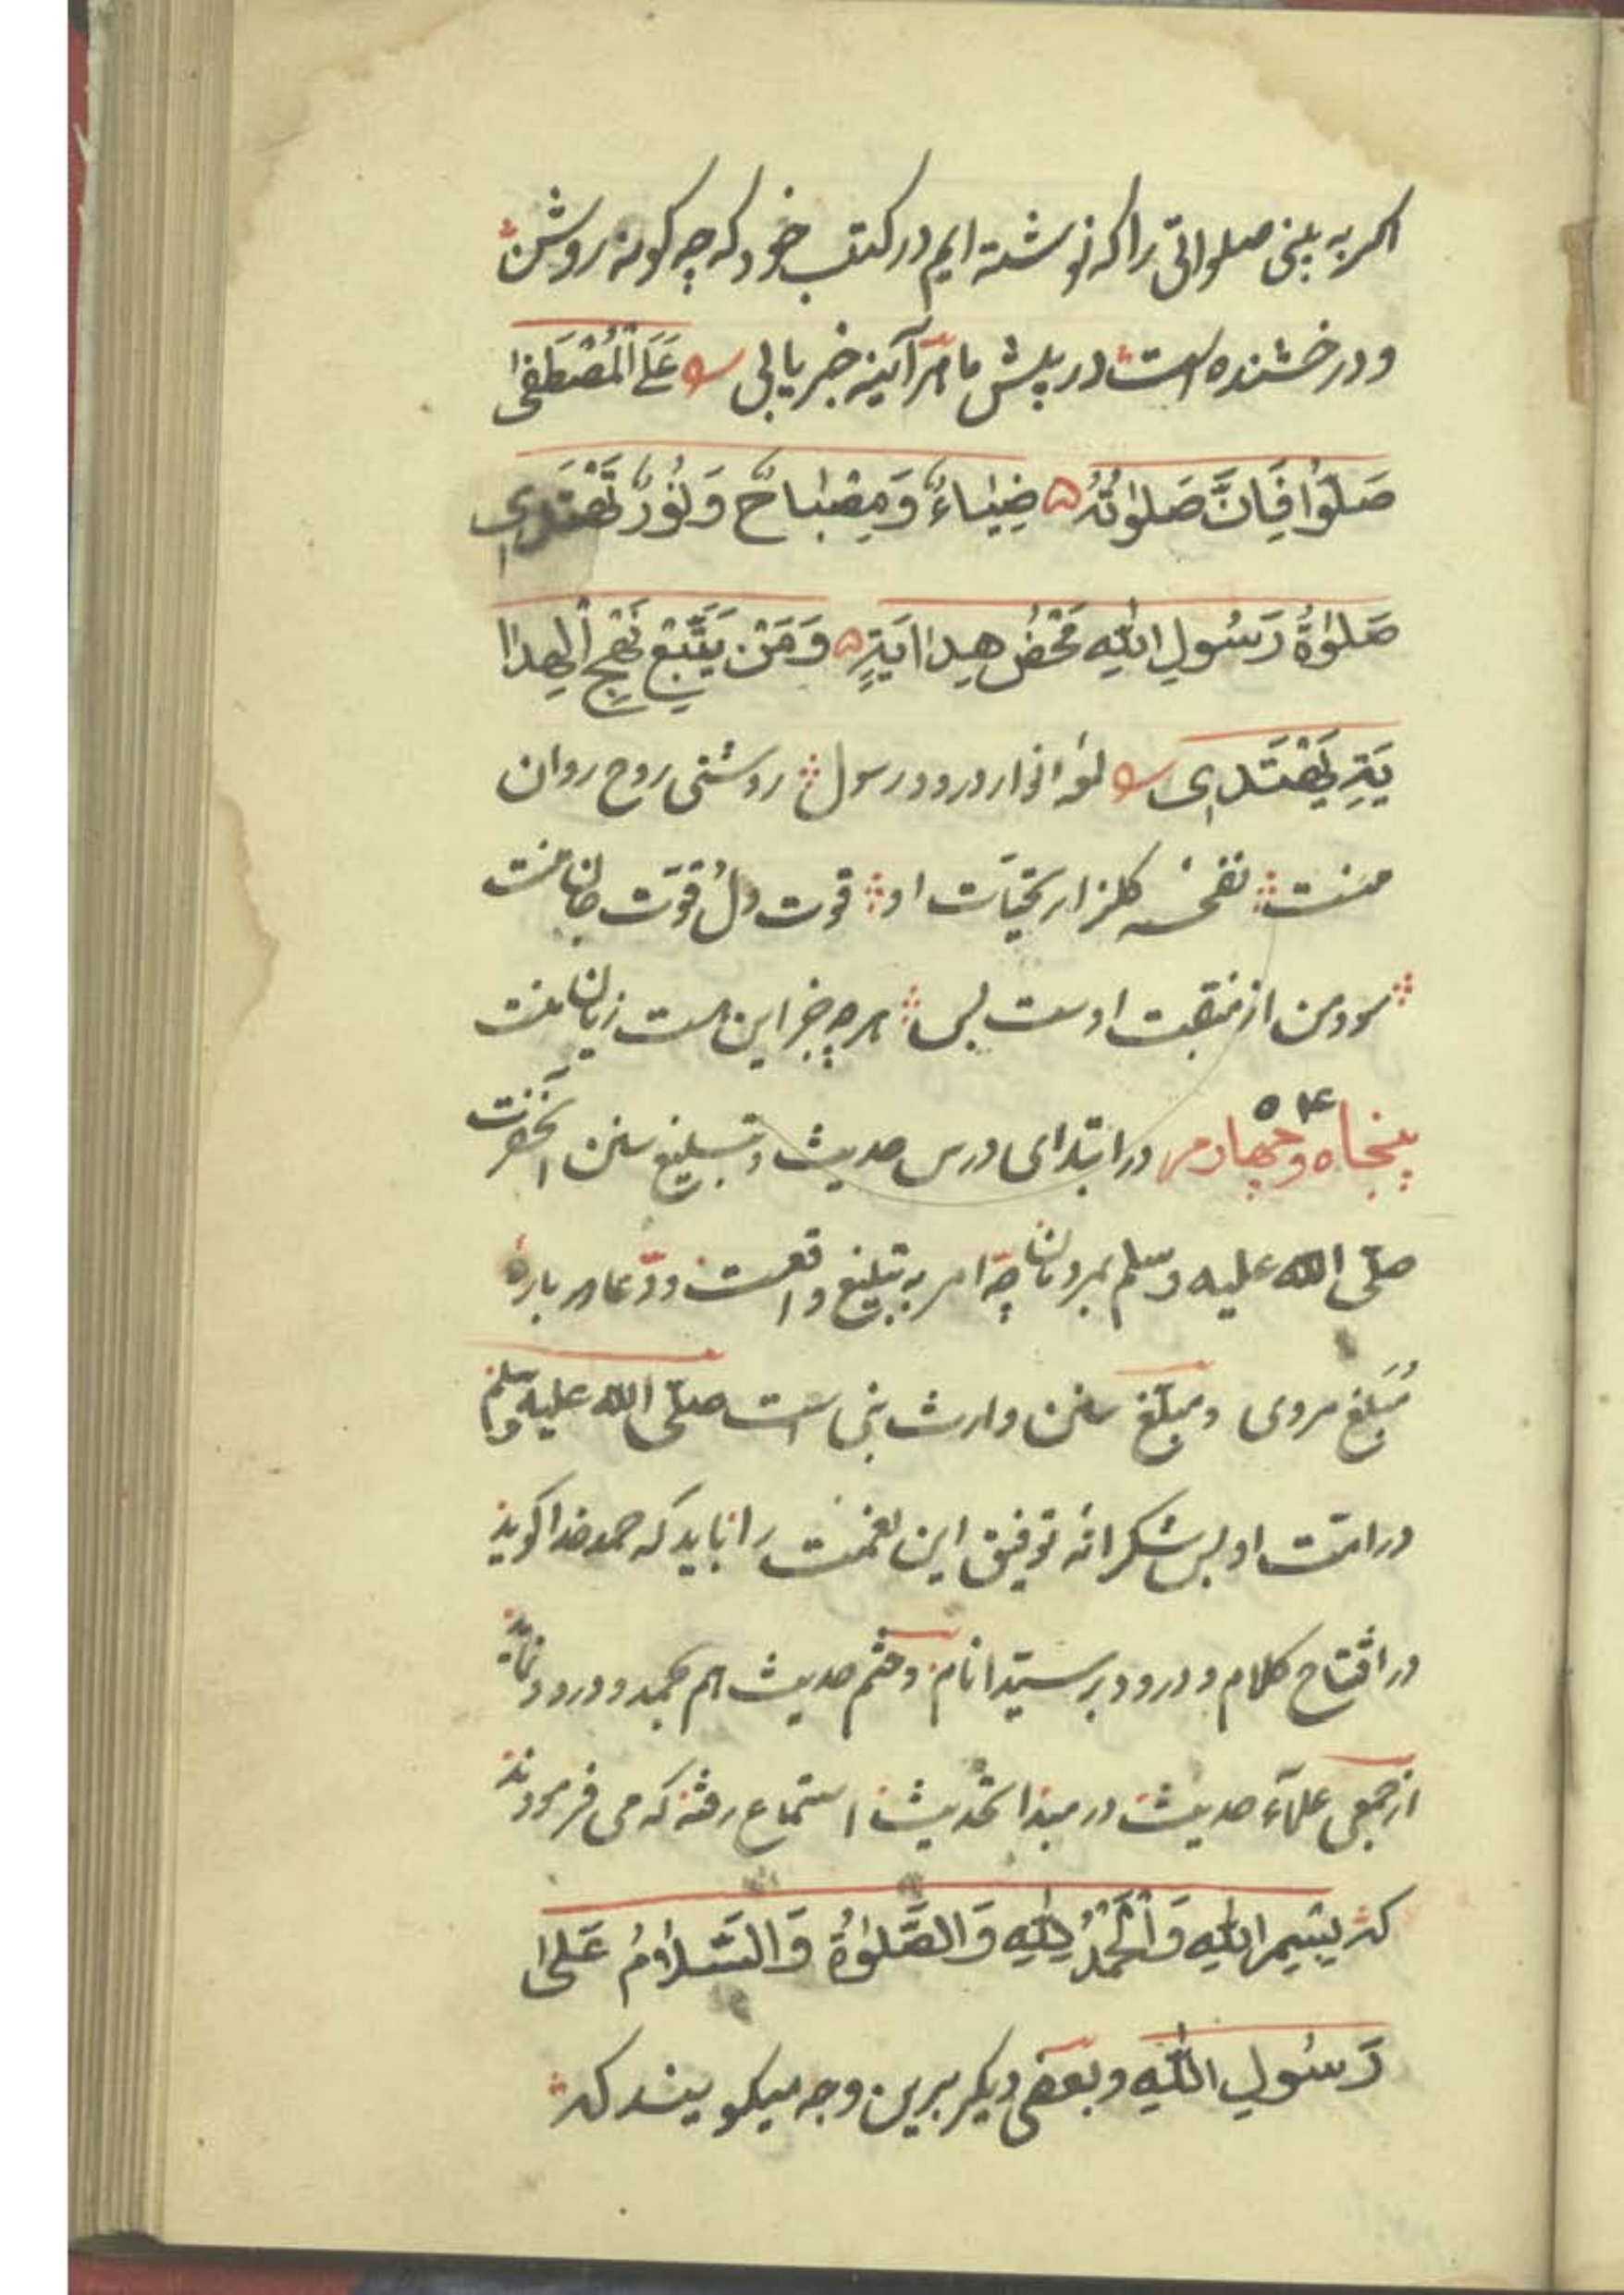 اکر به بینی صلواتی را که نوشته ایم در کتب خود که چه کونه روشن
و درخشنده است در پیش ما هرآینه خبر یابی عَلَی الْمُصْطَفٰی
صَلُّوا فَاِنَّ صَلٰوتُهُ ۵ ضِیٰاءٌ وَمِصْبٰاحٌ وَنُورٌ تَهْتَدِی
صَلٰوةُ رَسُولِ اللّٰهِ مَحْضُ هِدٰایَةٍ ۵ وَمَنْ یَتَّبِعْ نَهْجَ الْهِدٰا
یَةِ یَهْتَدِی انوار درود رسول روشنی روح روان
منست نفخهٔ کلزار تحیّات او قوت دل قوّت جان منست
سود من از منقبت اوست بس هر چه جز این هست زیان منست
پنجاه و چهارم ۵۴ در ابتدای درس حدیث و تبلیغ سنن آنحضرت
صلّی الله علیه وسلم بمردمان چه امر به تبلیغ واقعست و دعا در باره
مُبَلّغ مروی و مبلّغ سنن وارث نبی است صلّی الله علیه وسلم
در امّت او پس شکرانه توفیق این نعمت را باید که حمد خدا کوید
در افتتاح کلام و درود بر سیّد انام و ختم حدیث هم بحمد و درود نماید
از جمعی علمآء حدیث در مبدا تحدیث استماع رفته که می فرمودند
که بِسْمِ اللّٰهِ وَالْحَمْدُ لِلّٰهِ وَالصَّلٰوةُ وَالسَّلٰامُ عَلٰی
رَسُولِ اللّٰهِ و بعضی دیکر برین وجه میکویند که